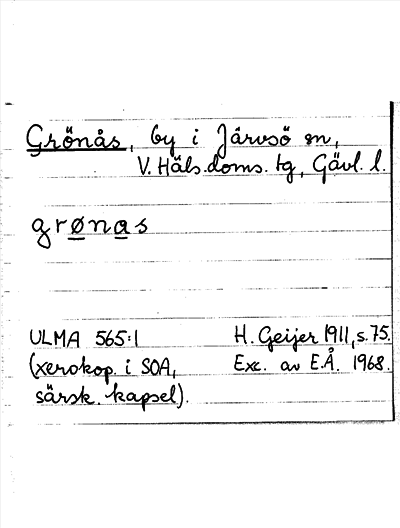 Grönås, by i Järvsö sn,
V. Häls. doms. tg, Gävl. l.
grønas
ULMA 565:1 H. Geijer 1911, s. 75.
(xerokop. i SOA, Exc. av E.Å. 1968.
särsk. kapsel).